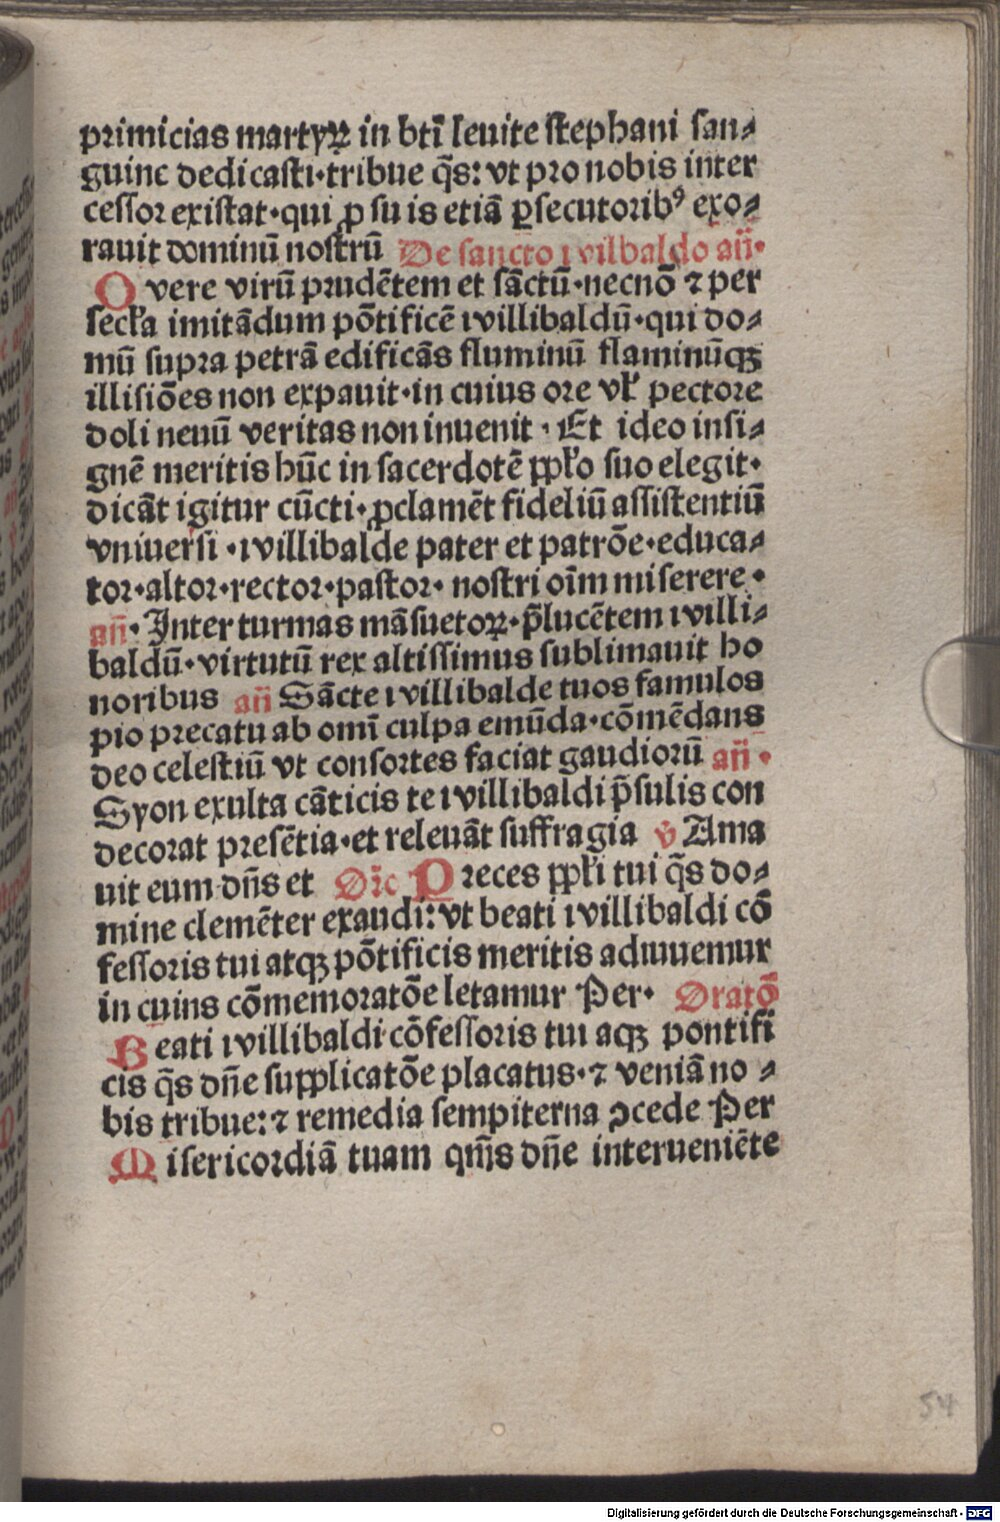 primicias martyꝝ in bti̅ leuite stephani san⸗
guine dedicasti·tribue q̅s: vt pro nobis inter
cessor existat·qui ꝓ su is etiā ꝑsecutorib⁹ exo⸗
rauit dominū nostrū De sancto wilbaldo an̄·
O vere virū prudētem et sāctū·necnō ⁊ per
secľa imitādum pōtificē willibaldū·qui do⸗
mū supra petrā edificās fluminū flaminūqꝫ
illisiōes non expauit·in cuius ore vľ pectore
doli neuū veritas non inuenit · Et ideo insi⸗
gnē meritis hūc in sacerdotē ppľo suo elegit·
dicāt igitur cūcti·ꝓclamēt fideliū assistentiū
vniuersi ·willibalde pater et patrōe·educa⸗
tor·altor·rector·pastor· nostri oīm miserere ·
an̄· Inter turmas māsuetoꝝ·p̄lucētem willi⸗
baldū·virtutū rex altissimus sublimauit ho
noribus an̄ Sācte willibalde tuos famulos
pio precatu ab omī culpa emūda·cōmēdans
deo celestiū vt consortes faciat gaudiorū an̄ ·
Syon exulta cāticis te willibaldi p̄sulis con
decorat presētia·et releuāt suffragia v̄ Ama
uit eum dn̄s et Or̄c Preces ppľi tui q̄s do⸗
mine clemēter exaudi: vt beati willibaldi cō
fessoris tui atqꝫ pōtificis meritis adiuuemur
in cuius cōmemoratōe letamur Per· Oratō
Beati willibaldi cōfessoris tui aqꝫ pontifi
cis q̄s dn̄e supplicatōe placatus·⁊ veniā no ⸗
bis tribue: ⁊ remedia sempiterna ꝯcede Per
Misericordiā tuam qm̄s dn̄e interueniēte
54
Digitalisierung gefördert durch die Deutsche Forschungsgemeinschaft - DFG